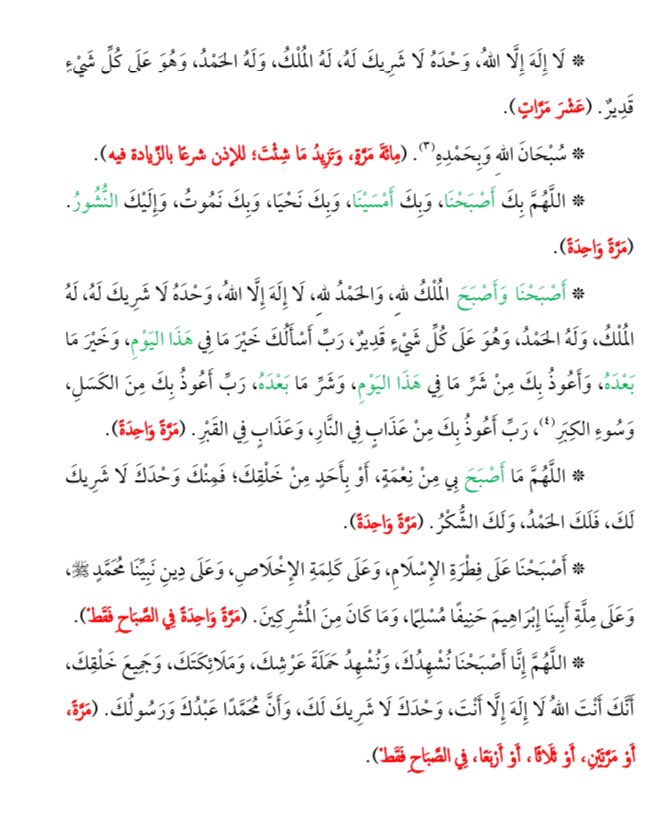 * لَا إِلَهَ إِلَّا اللهُ، وَحْدَهُ لَا شَرِيكَ لَهُ، لَهُ المُلْكُ، وَلَهُ الحَمْدُ، وَهُوَ عَلَى كُلِّ شَيْءٍ
قَدِيرٌ. (عَشْرَ مَرَّاتٍ).
* سُبْحَانَ اللهِ وَبِحَمْدِهِ(٣). (مِائَةَ مَرَّةٍ، وَتَزِيدُ مَا شِئْتَ؛ للإذن شرعًا بالزِّيادة فيه).
* اللَّهُمَّ بِكَ أَصْبَحْنَا، وَبِكَ أَمْسَيْنَا، وَبِكَ نَحْيَا، وَبِكَ نَمُوتُ، وَإِلَيْكَ النُّشُورُ.
(مَرَّةً وَاحِدَةً).
* أَصْبَحْنَا وَأَصْبَحَ المُلْكُ للهِ، وَالحَمْدُ للهِ، لَا إِلَهَ إِلَّا اللهُ، وَحْدَهُ لَا شَرِيكَ لَهُ، لَهُ
المُلْكُ، وَلَهُ الحَمْدُ، وَهُوَ عَلَى كُلِّ شَيْءٍ قَدِيرٌ، رَبِّ أَسْأَلُكَ خَيْرَ مَا فِي هَذَا اليَوْمِ، وَخَيْرَ مَا
بَعْدَهُ، وَأَعُوذُ بِكَ مِنْ شَرِّ مَا فِي هَذَا اليَوْمِ، وَشَرِّ مَا بَعْدَهُ، رَبِّ أَعُوذُ بِكَ مِنَ الكَسَلِ،
وَسُوءِ الكِبَرِ(٤)، رَبِّ أَعُوذُ بِكَ مِنْ عَذَابٍ فِي النَّارِ، وَعَذَابٍ فِي القَبْرِ. (مَرَّةً وَاحِدَةً).
* اللَّهُمَّ مَا أَصْبَحَ بِي مِنْ نِعْمَةٍ، أَوْ بِأَحَدٍ مِنْ خَلْقِكَ؛ فَمِنْكَ وَحْدَكَ لَا شَرِيكَ
لَكَ، فَلَكَ الحَمْدُ، وَلَكَ الشُّكْرُ. (مَرَّةً وَاحِدَةً).
* أَصْبَحْنَا عَلَى فِطْرَةِ الإِسْلَامِ، وَعَلَى كَلِمَةِ الإِخْلَاصِ، وَعَلَى دِينِ نَبِيِّنَا مُحَمَّدٍ ﷺ،
وَعَلَى مِلَّةِ أَبِينَا إِبْرَاهِيمَ حَنِيفًا مُسْلِمًا، وَمَا كَانَ مِنَ المُشْرِكِينَ. (مَرَّةً وَاحِدَةً فِي الصَّبَاحِ فَقَطْ).
* اللَّهُمَّ إِنَّا أَصْبَحْنَا نُشْهِدُكَ، وَنُشْهِدُ حَمَلَةَ عَرْشِكَ، وَمَلَائِكَتَكَ، وَجَمِيعَ خَلْقِكَ،
أَنَّكَ أَنْتَ اللهُ لَا إِلَهَ إِلَّا أَنْتَ، وَحْدَكَ لَا شَرِيكَ لَكَ، وَأَنَّ مُحَمَّدًا عَبْدُكَ وَرَسُولُكَ. (مَرَّةً،
أَوْ مَرَّتَيْنِ، أَوْ ثَلَاثًا، أَوْ أَرْبَعًا، فِي الصَّبَاحِ فَقَطْ).